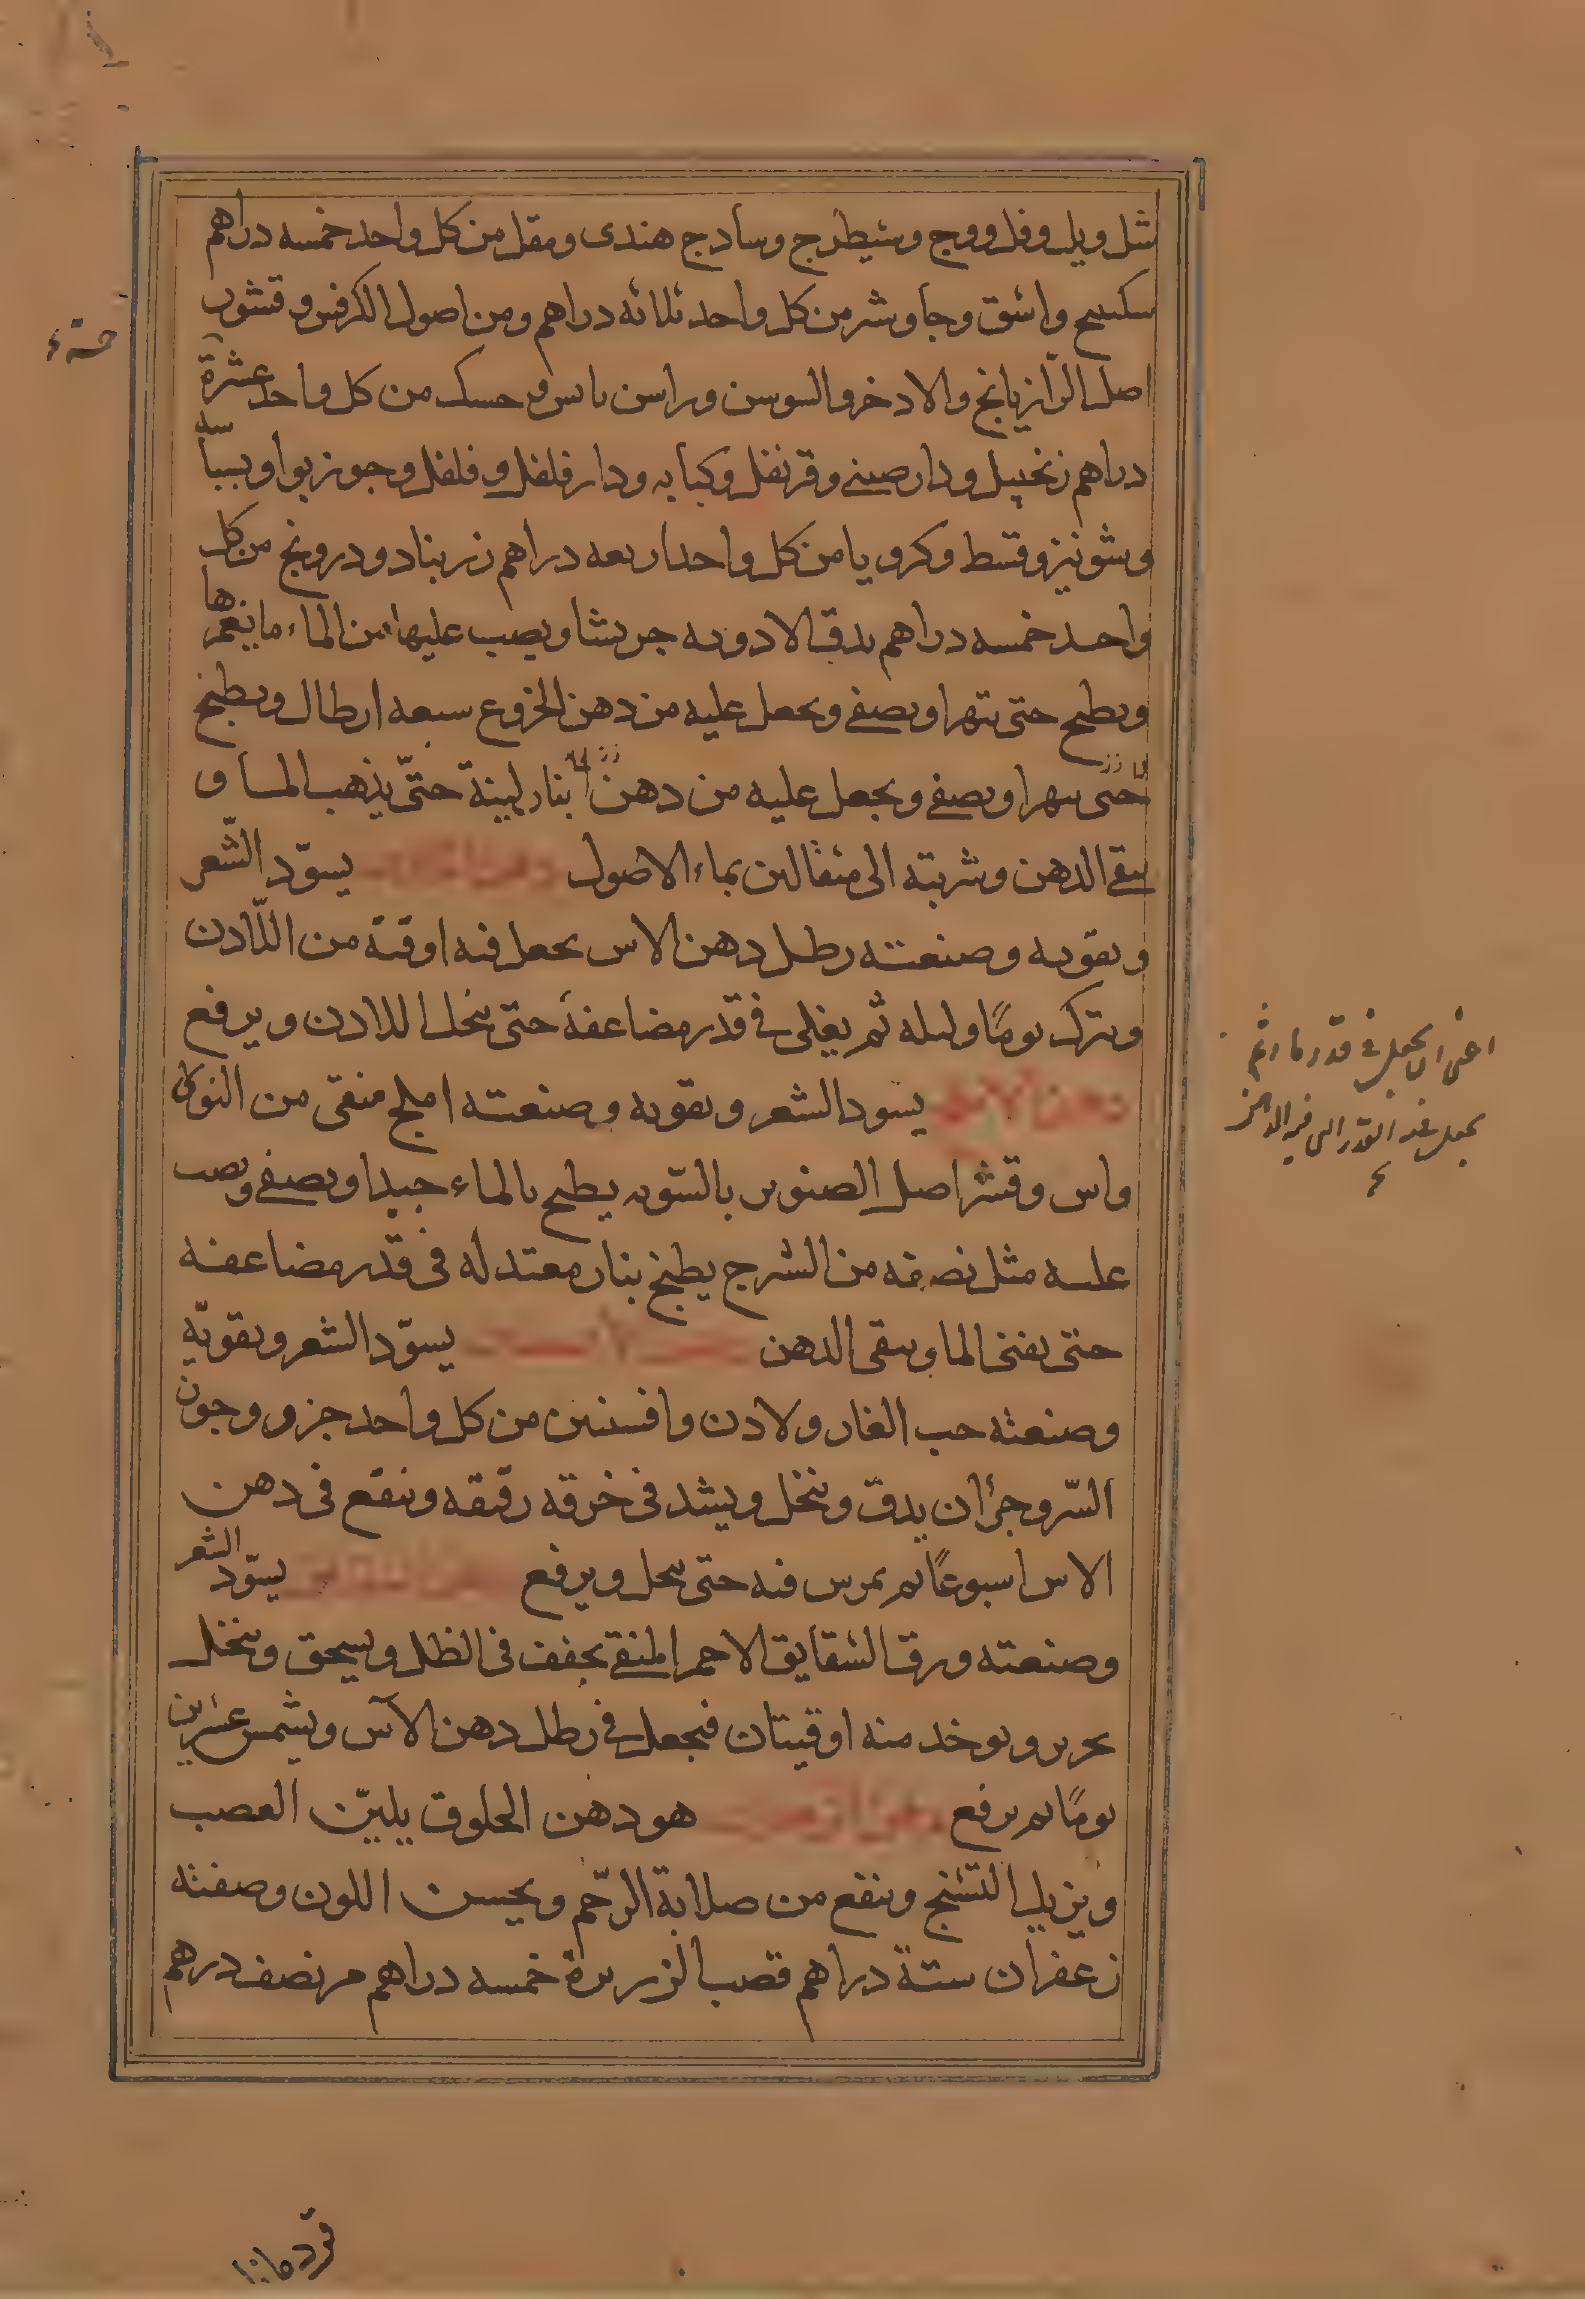 شل وبل وفل ووج وشيطرج وسادج هندى ومقل من كل واحد خمسه دراهم
سكبينج واشق وجاوشر من كل واحد ثلاثه دراهم ومن اصول الكرفس وقشور
اصل الرّازيانج والاذخر والسوسن وراسن يابس وحسك من كل واحد عشرة
دراهم زنجبيل ودارصينى وقرنفل وكبابه ودارفلفل وفلفل وجوزبوا وبسباسه
وشونيز وقسط وكرويا من كل واحد اربعه دراهم زرنباد ودرونج من كل
واحد خمسه دراهم يدق الادويه جريشا ويصب عليها من الماء ما يغمرها
ويطبخ حتى يتهرا ويصفى ويجعل عليه من دهن الخروع سبعه ارطال ويطبخ
حتى يتهرا ويصفى ويجعل عليه من دهن بنار لينة حتّى يذهب الما و
يبقى الدهن وشربته الى مثقالين بماء الاصول يسوّد الشّعر
ويقويه وصنعته رطل دهن الاس يجعل فيه اوقية من اللّادن
ويترك يومًا وليله ثم يغلى فى قدر مضاعفة حتى ينحل اللادن ويرفع
دهن الاملج يسود الشعر ويقويه وصنعته املج منقى من النوى
واس وقشر اصل الصنوبر بالسّويه يطبخ بالماء جيدا ويصفى ويصب
عليه مثل نصفه من الشيرج يطبخ بنار معتدله فى قدر مضاعفه
حتى يفنى الما ويبقى الدهن يسوّد الشعر ويقويّه
وصنعته حب الغار ولادن وافسنتين من كل واحد جزو وجوز
السّرو جزءان يدق وينخل ويشد فى خرقه رقيقه وينقع فى دهن
الاس اسبوعًا ثم يمرس فيه حتى ينحل ويرفع يسوّد الشعر
وصنعته ورق الشقايق الاحمر المنقى يجفف فى الظل ويسحق وينخل
بحرير ويوخد منه اوقيتان فيجعل فى رطل دهن الآس ويشمس عشرين
يومًا ثم يرفع هو دهن الخلوق يليّن العصب
ويزيل التشنج وينفع من صلابة الرّحم ويحسن اللون وصفته
زعفران ستة دراهم قصب الزريرة خمسه دراهم مر نصف درهم
اعنى ان يجعل فى قدر ماء ثم
يجعل فيه القدر التى فيه الدهن
قردمانا